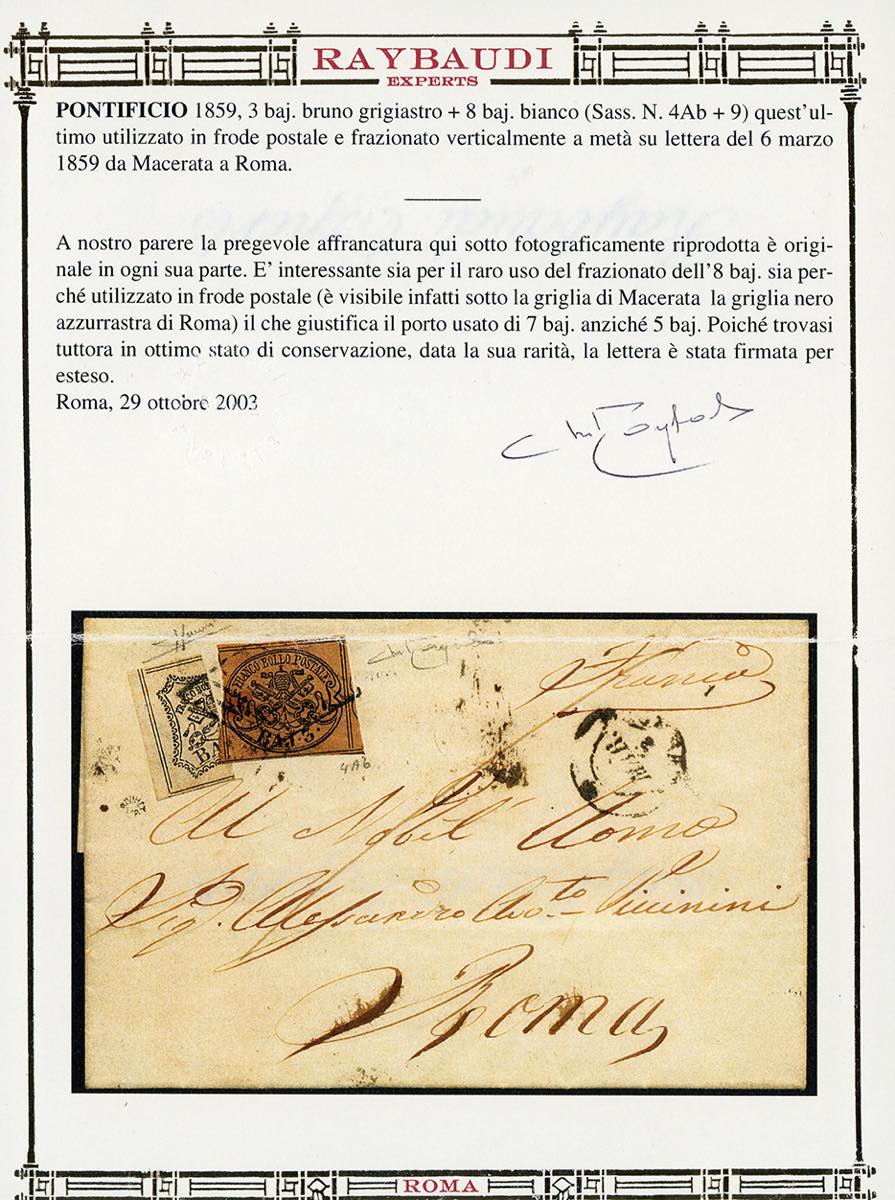 RAYBAUDI
EXPERTS
PONTIFICIO 1859, 3 baj. bruno grigiastro + 8 baj. bianco (Sass. N. 4Ab + 9) quest'ul-
timo utilizzato in frode postale e frazionato verticalmente a metà su lettera del 6 marzo
1859 da Macerata a Roma.
A nostro parere la pregevole affrancatura qui sotto fotograficamente riprodotta è origi-
nale in ogni sua parte. E' interessante sia per il raro uso del frazionato dell'8 baj. sia per-
ché utilizzato in frode postale (è visibile infatti sotto la griglia di Macerata la griglia nero
azzurrastra di Roma) il che giustifica il porto usato di 7 baj. anziché 5 baj. Poiché trovasi
tuttora in ottimo stato di conservazione, data la sua rarità, la lettera è stata firmata per
esteso.
Roma, 29 ottobre 2003
FRANCO BOLLO POSTALE
BAJ. 3.
BA
4Ab
Franca
Al Nobil Uomo
Sig. Alessandro Avo.to Piccinini
Roma
ROMA